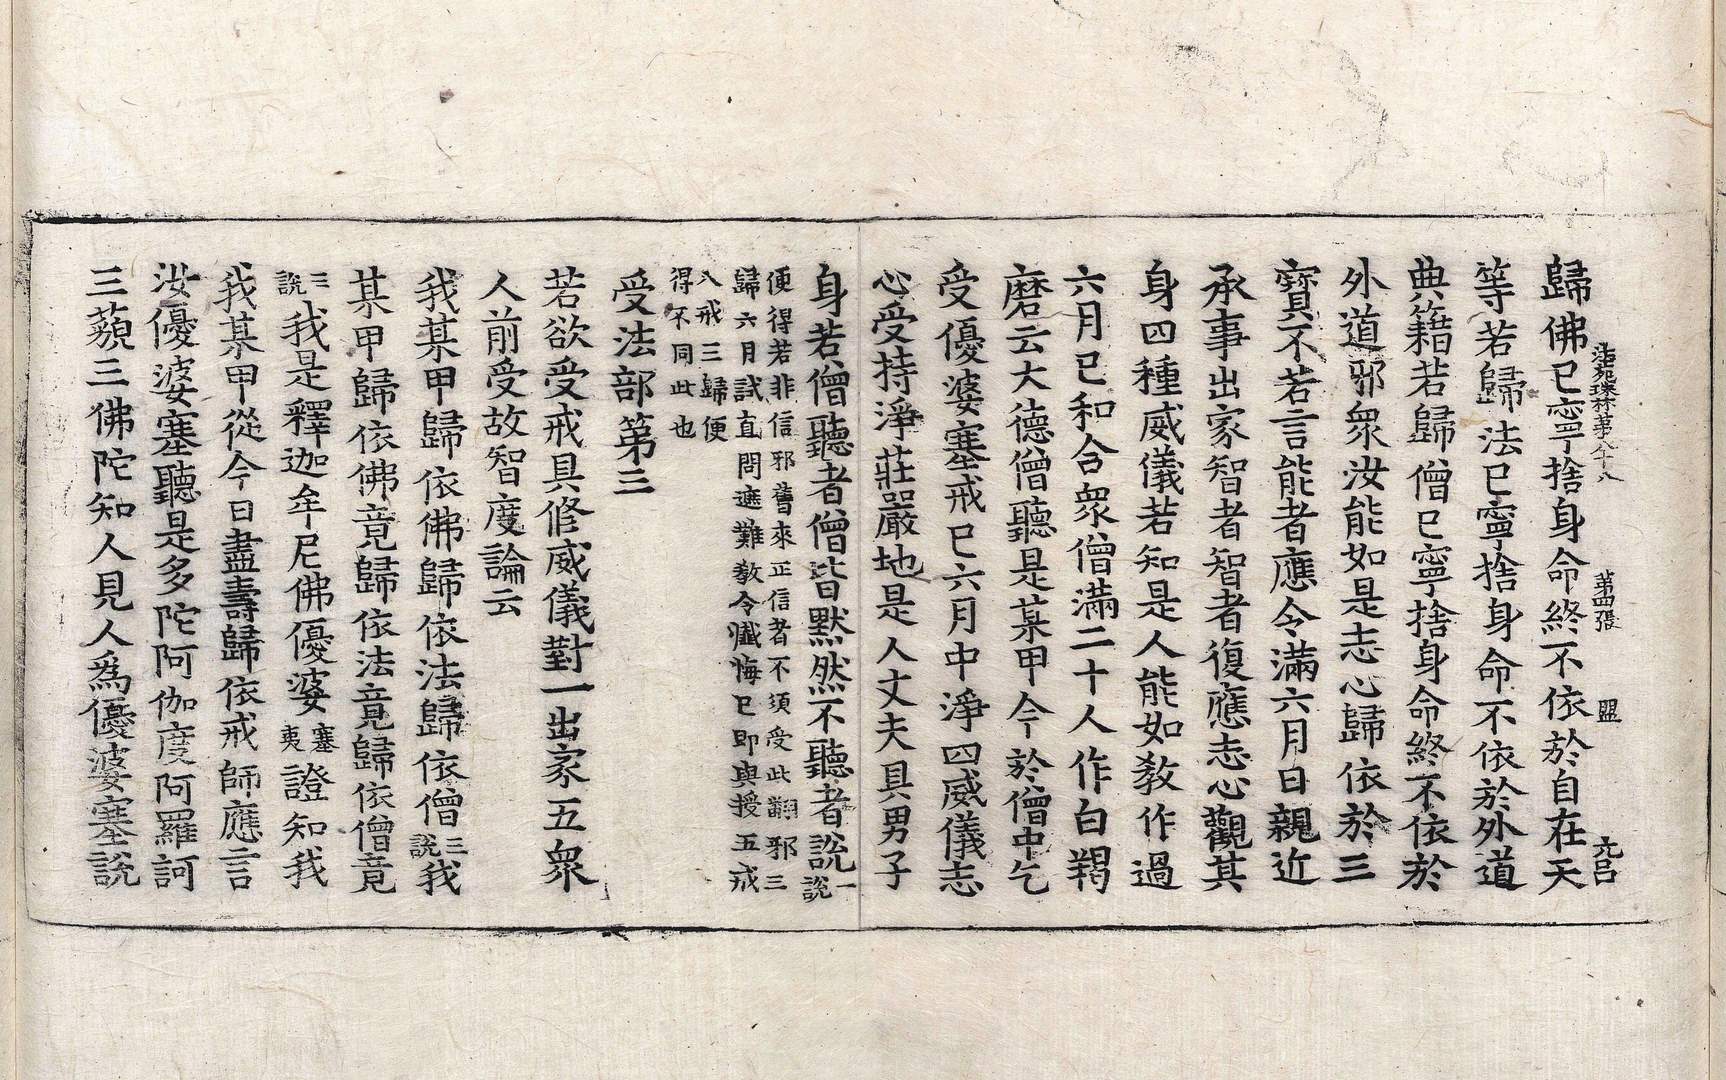 法苑珠林第八十八 第四張 盟 元呂
歸佛已寧捨身命終不依於自在天
等若歸法已寧捨身命不依於外道
典籍若歸僧已寧捨身命終不依於
外道邪衆汝能如是志心歸依於三
寶不若言能者應令滿六月日親近
承事出家智者智者復應志心觀其
身四種威儀若知是人能如教作過
六月已和合衆僧滿二十人作白羯
磨云大德僧聽是某甲今於僧中乞
受優婆塞戒已六月中淨四威儀志
心受持淨莊嚴地是人丈夫具男子
身若僧聽者僧皆默然不聽者說一說
便得若非信邪舊來正信者不須受此翻邪三
歸六月試直問遮難教令懺悔已即與授五戒
八戒三歸便
得不同此也
受法部第三
若欲受戒具修威儀對一出家五衆
人前受故智度論云
我某甲歸依佛歸依法歸依僧三說我
某甲歸依佛竟歸依法竟歸依僧竟
三說我是釋迦牟尼佛優婆塞夷證知我
我某甲從今日盡壽歸依戒師應言
汝優婆塞聽是多陀阿伽度阿羅訶
三藐三佛陀知人見人爲優婆塞說